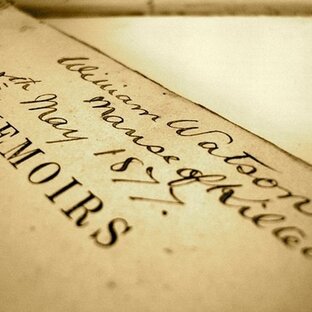 William Watson
Manse of
th May 1877.
EMOIRS